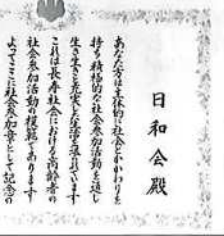 日和会殿
あなた方は主体的に社会とかかわりを
持ち積極的な社会参加活動を通し
生き生きと充実した生活を送られています
これは長寿社会における高齢者の
社会参加活動の模範であります
よってここに社会参加章として記念の